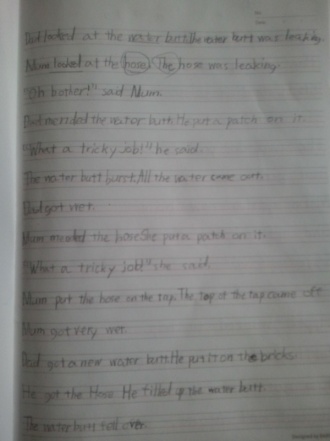 Dad looked at the water butt. The water butt was leaking.
Mum looked at the hose. The hose was leaking
"Oh bother!" said Mum.
Dad mended the water butt. He put a patch on it.
"What a tricky job!" he said.
The water butt burst. All the water came out.
Dad got wet.
Mum mended the hose. She put a patch on it.
"What a tricky job!" she said.
Mum put the hose on the tap. The top of the tap came off.
Mum got very wet.
Dad got a new water butt. He put it on the bricks.
He got the Hose He filled up the water butt.
The water butt fell over.